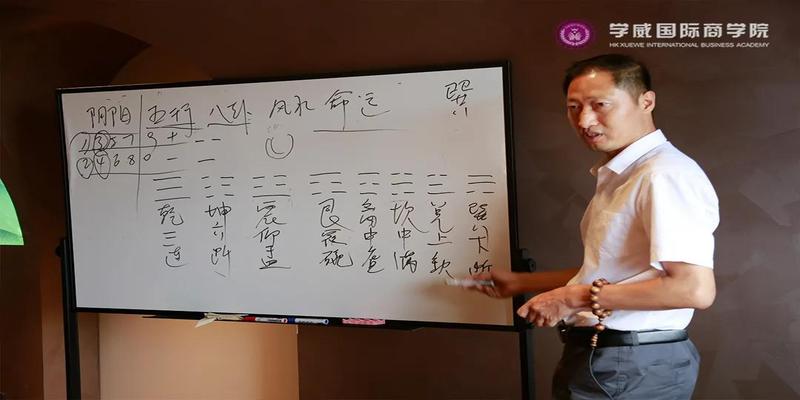 学威国际商学院
HK XUEWEI INTERNATIONAL BUSINESS ACADEMY
阴阳 五行 八卦 风水 命运 巽
1 3 5 7 9 +
2 4 6 8 0 -
乾三连 坤六断 震仰盂 艮覆碗 离中虚 坎中满 兑上缺 巽下断